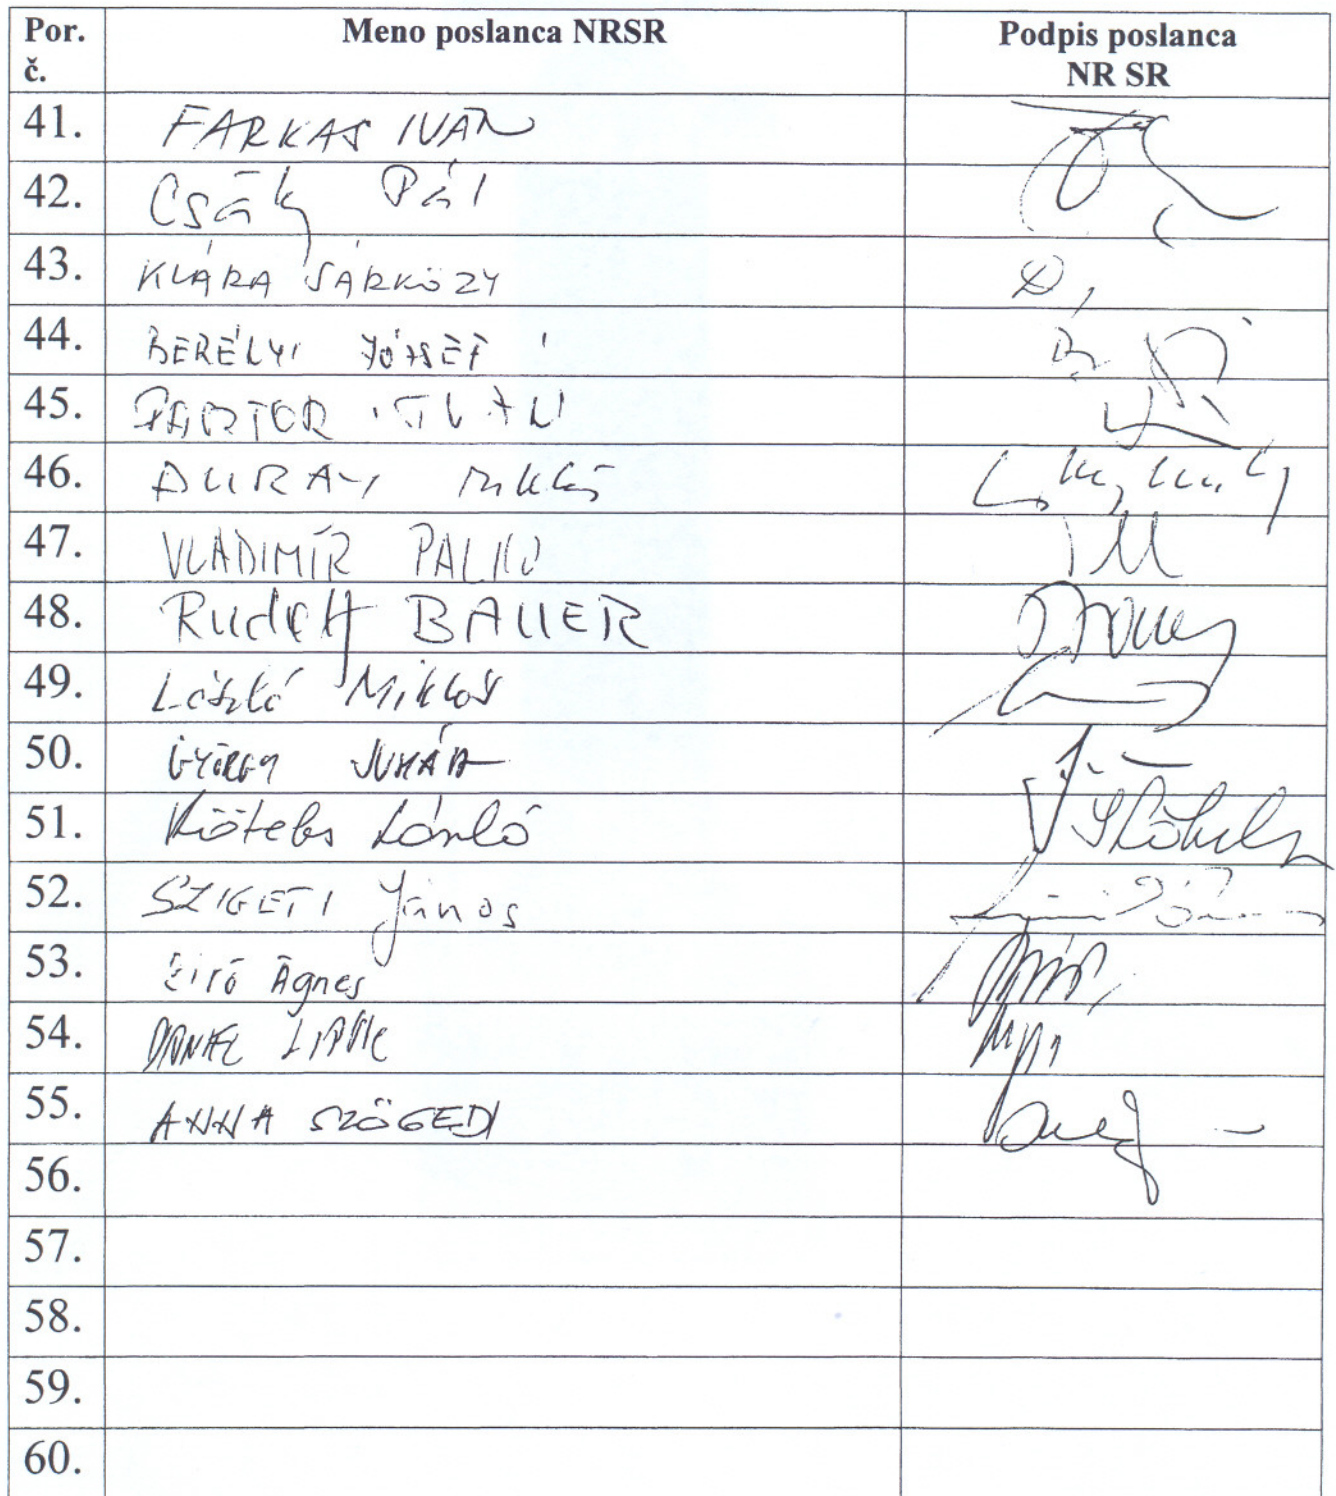 Por. č. Meno poslanca NRSR Podpis poslanca NR SR
41. FARKAS IVAN
42. Csáky Pál
43. KLÁRA SÁRKÖZY
44. BERÉNYI JÓZSEF
45. PÁSZTOR ISTVÁN
46. DURAY Miklós
47. VLADIMÍR PALKO
48. Rudolf BAUER
49. László Miklós
50. GYÖRGY JUHÁSZ
51. Köteles László
52. SZIGETI János
53. Biró Ágnes
54. DANIEL LIPŠIC
55. ANNA SZÖGEDI
56.
57.
58.
59.
60.